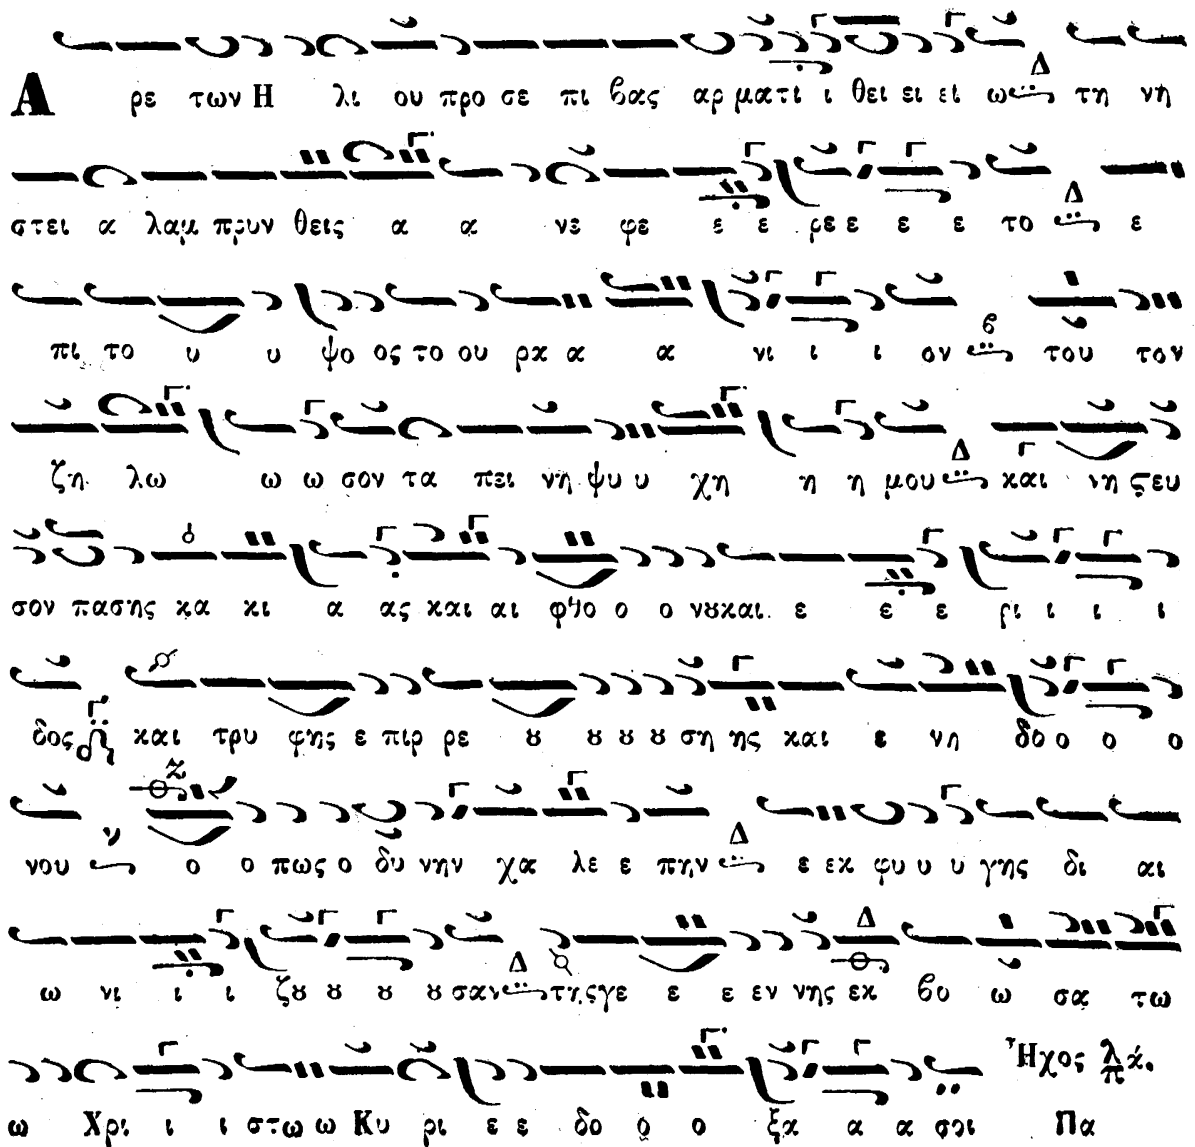 Α ρε των Η λι ου προ σε πι βας αρ ματι ι θει ει ει ω Δ τη νη
στει α λαμ πρυν θεις α α νε φε ε ε ρε ε ε ε το Δ ε
πι το υ υ ψο ος το ου ρα α α νι ι ι ον β του τον
ζη λω ω ω σον τα πει νη ψυ υ χη η η μου Δ και νη ϛευ
σον πασης κα κι α ας και αι φθο ο ο νȣ και ε ε ε ρι ι ι ι
δος και τρυ φης ε πιρ ρε ȣ ȣ ȣ ȣ ση ης και ε νη δο ο ο ο
νου ν ο ο πως ο δυ νην χα λε ε πην Δ ε εκ φυ υ υ γης δι αι
ω νι ι ι ζȣ ȣ ȣ ȣ σαν Δ της γε ε ε εν νης εκ βο ω σα τω
ω Χρι ι ι στω ω Κυ ρι ε ε δο ο ο ξα α α σοι Πα
Ἦχος λ π ά.